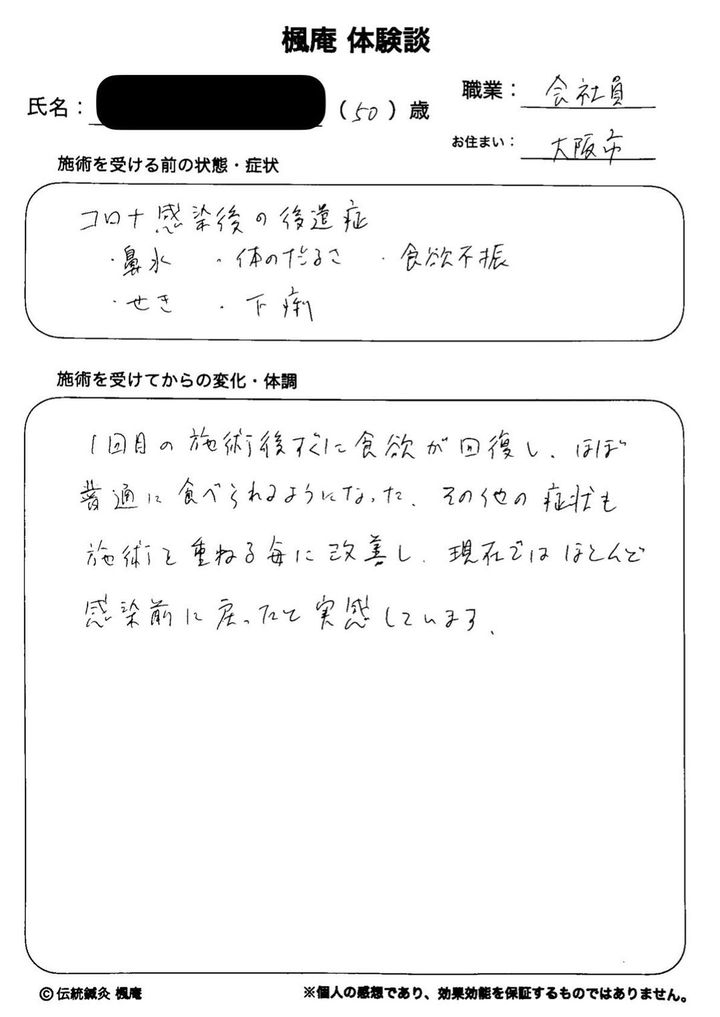 楓庵 体験談
氏名： （50）歳
職業： 会社員
お住まい： 大阪市
施術を受ける前の状態・症状
コロナ感染後の後遺症
・鼻水 ・体のだるさ ・食欲不振
・せき ・下痢
施術を受けてからの変化・体調
1回目の施術後すぐに食欲が回復し、ほぼ
普通に食べられるようになった、その他の症状も
施術を重ねる毎に改善し、現在ではほとんど
感染前に戻ったと実感しています、
© 伝統鍼灸 楓庵
※個人の感想であり、効果効能を保証するものではありません。